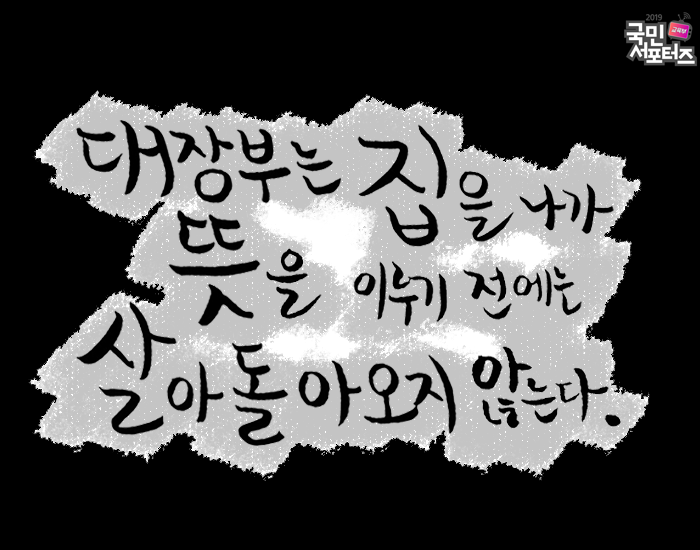 2019
국민
교육부
서포터즈
대장부는 집을 나가
뜻을 이루기 전에는
살아돌아오지 않는다.